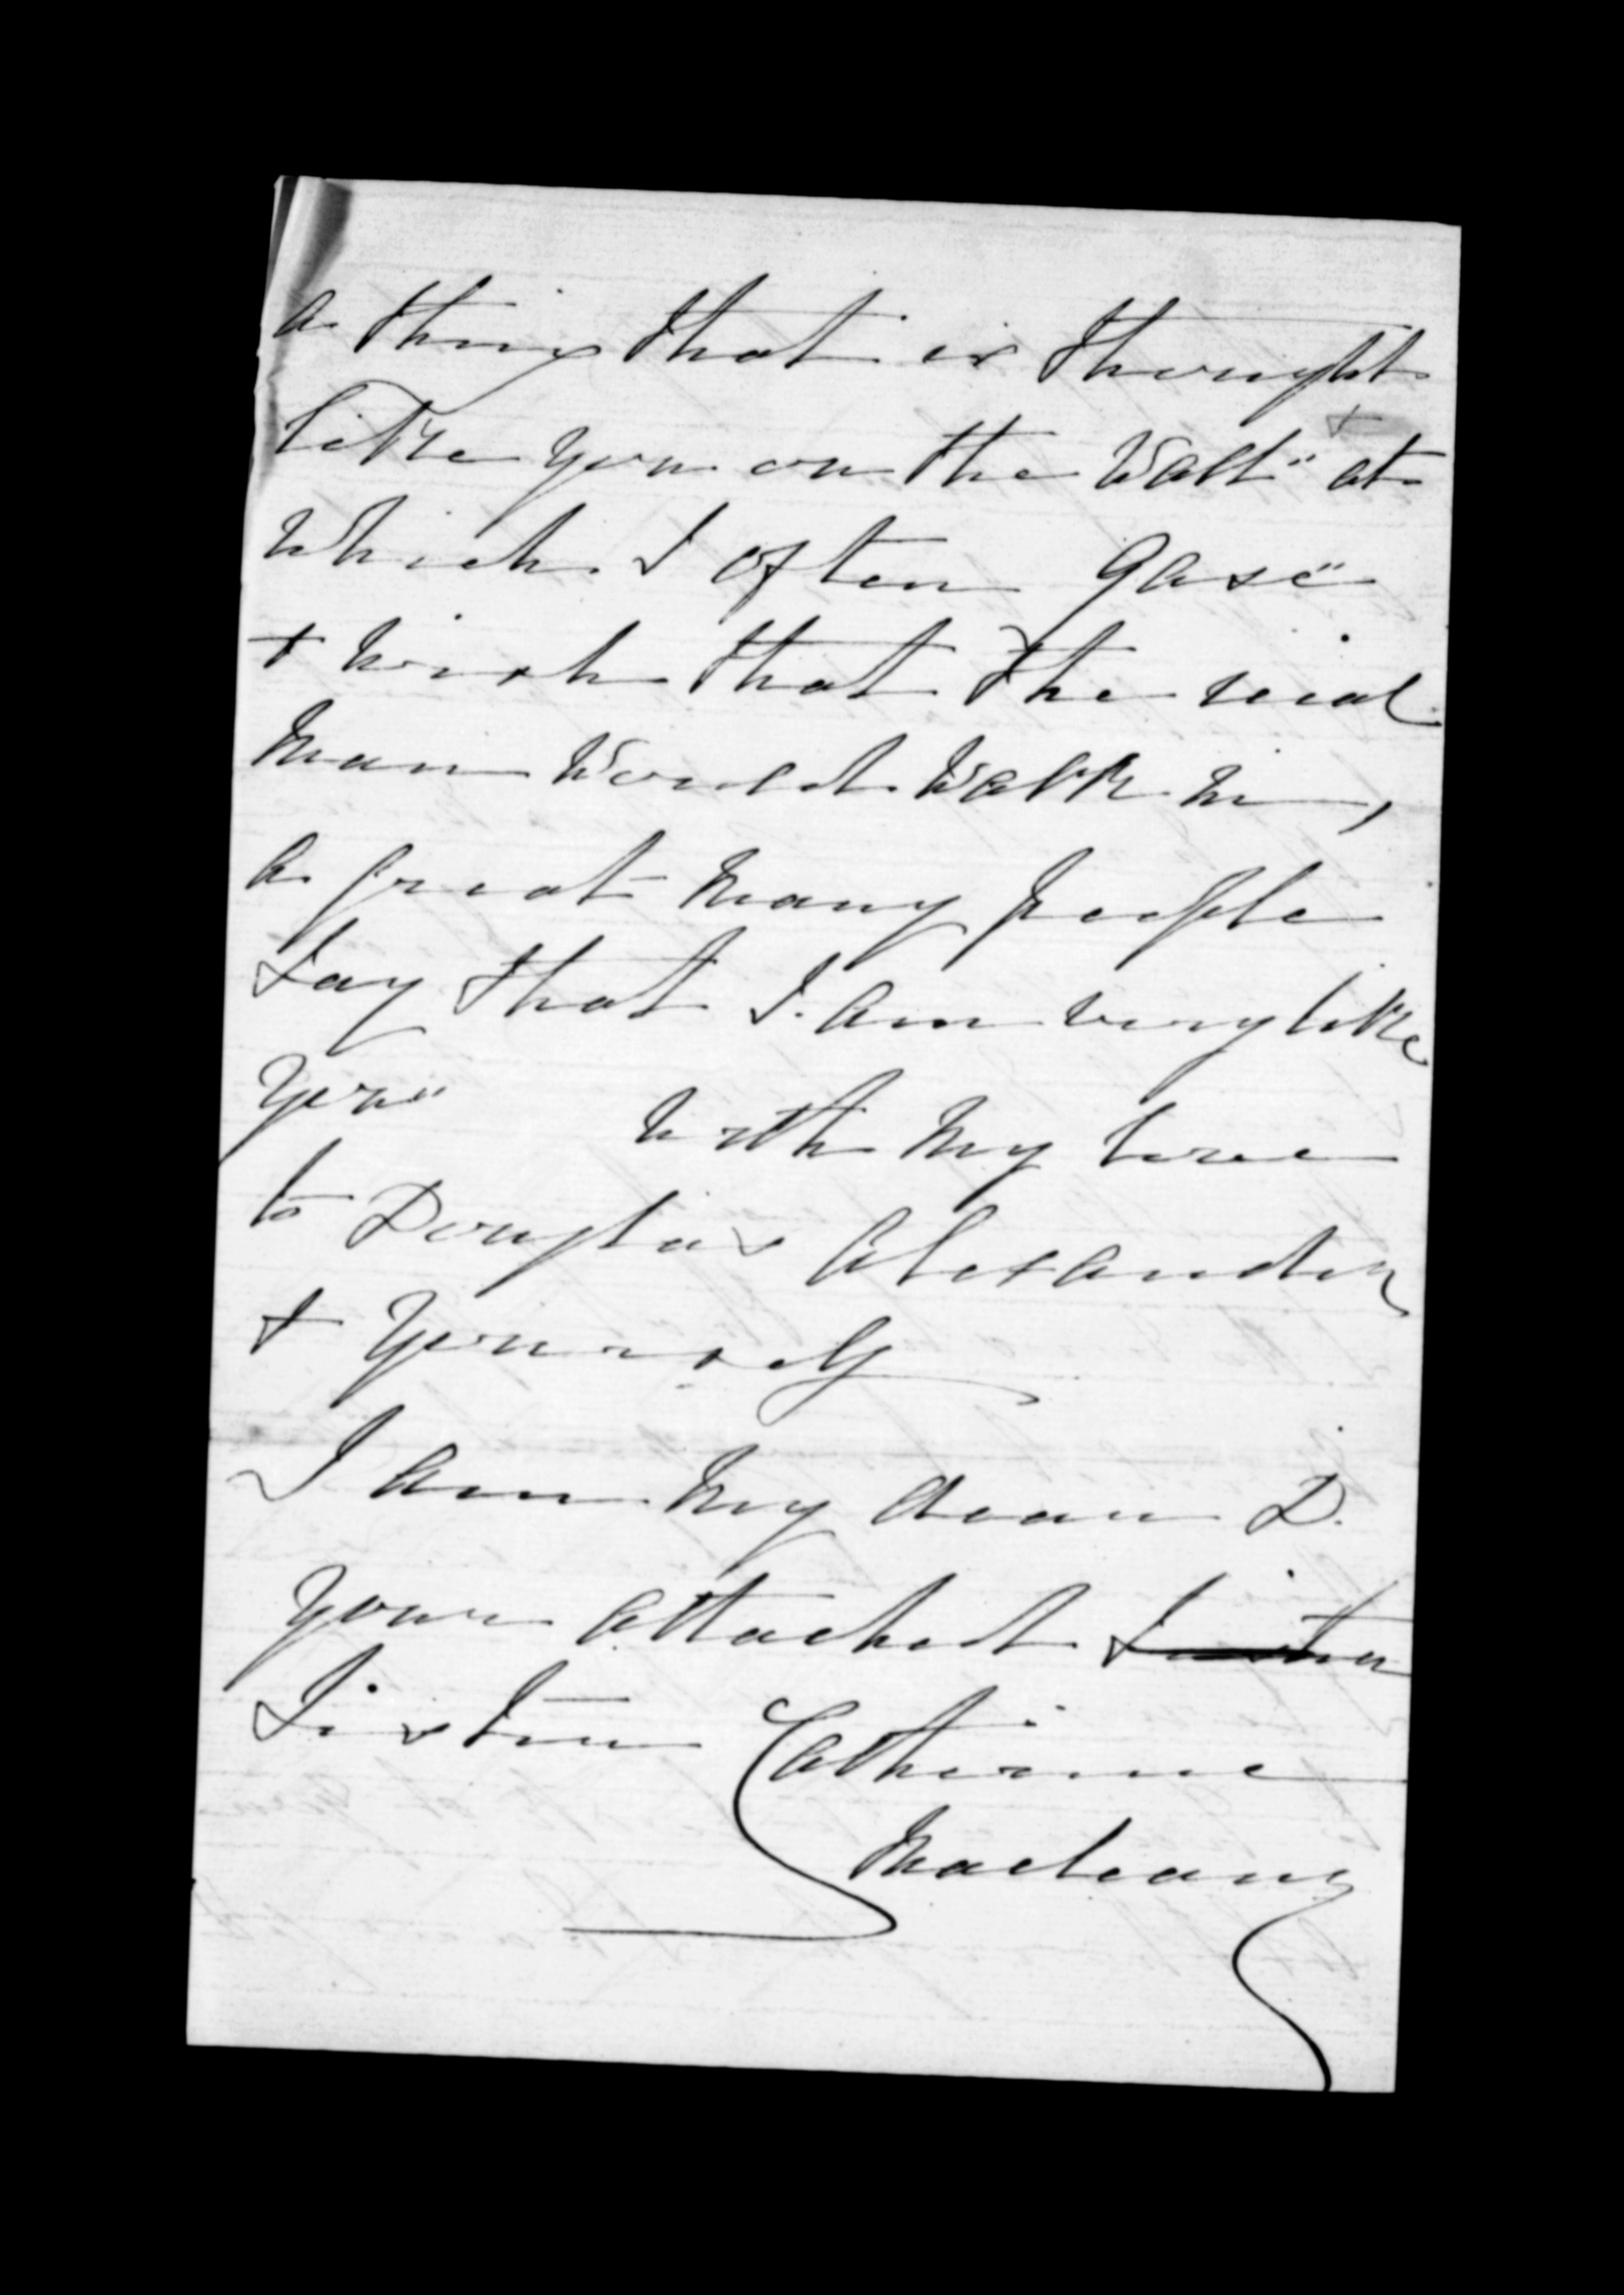 a thing that is thought
like you on the Wall" & at
which I often gase"
& wish that the real
man would walk in,
a great many people
say that I am very like
you" with my love
to Douglas Alexander
& yourself
I am my dear D.
your attached
Sister Catherine
Maclean